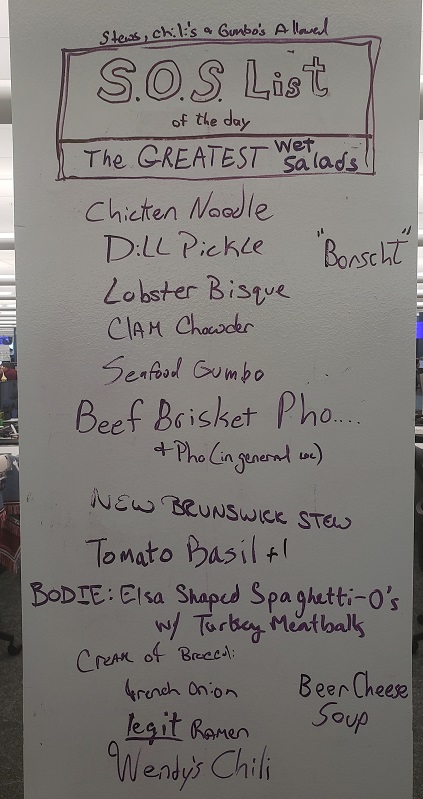 Stews, chili's & Gumbo's Allowed
S.O.S. List
of the day
The GREATEST Wet Salads
Chicken Noodle
Dill Pickle
"Borscht"
Lobster Bisque
Clam Chowder
Seafood Gumbo
Beef Brisket Pho....
+ Pho (in general lol)
NEW BRUNSWICK STEW
Tomato Basil +1
BODIE: Elsa Shaped Spaghetti-O's
w/ Turkey Meatballs
Cream of Broccoli
French Onion
Beer Cheese
Soup
legit Ramen
Wendy's Chili